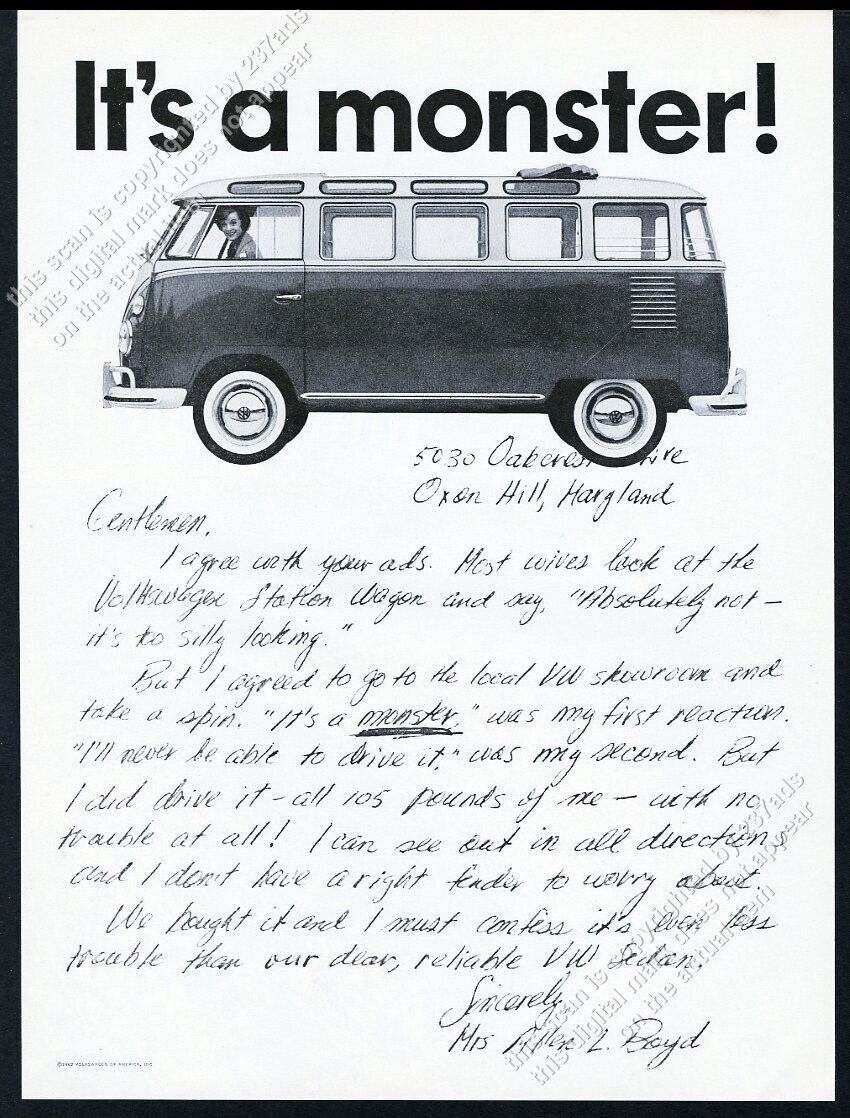 It's a monster!
this scan is copyrighted by 237ads
this digital mark does not appear
on the actual item
5030 Oakcrest Drive
Oxon Hill, Maryland
Gentlemen,
I agree with your ads. Most wives look at the
Volkswagen Station Wagon and say, "Absolutely not –
it's too silly looking."
But I agreed to go to the local VW showroom and
take a spin. "It's a monster," was my first reaction.
"I'll never be able to drive it," was my second. But
I did drive it – all 105 pounds of me – with no
trouble at all! I can see out in all directions,
and I don't have a right fender to worry about.
We bought it and I must confess it's even less
trouble than our dear, reliable VW Sedan.
Sincerely
Mrs Allen L. Boyd
©1962 VOLKSWAGEN OF AMERICA, INC.
this scan is copyrighted by 237ads
this digital mark does not appear
on the actual item